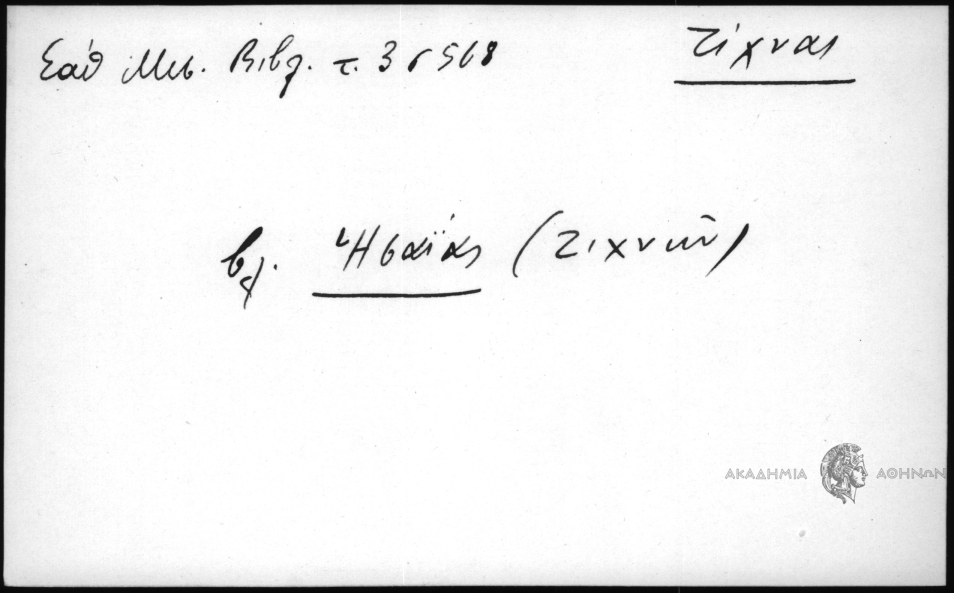 Σάθ Μεσ. Βιβλ. τ. 3 σ 568
Ζίχνας
βλ. Ἡσαΐας (Ζιχνῶν)
ΑΚΑΔΗΜΙΑ ΑΘΗΝΩΝ